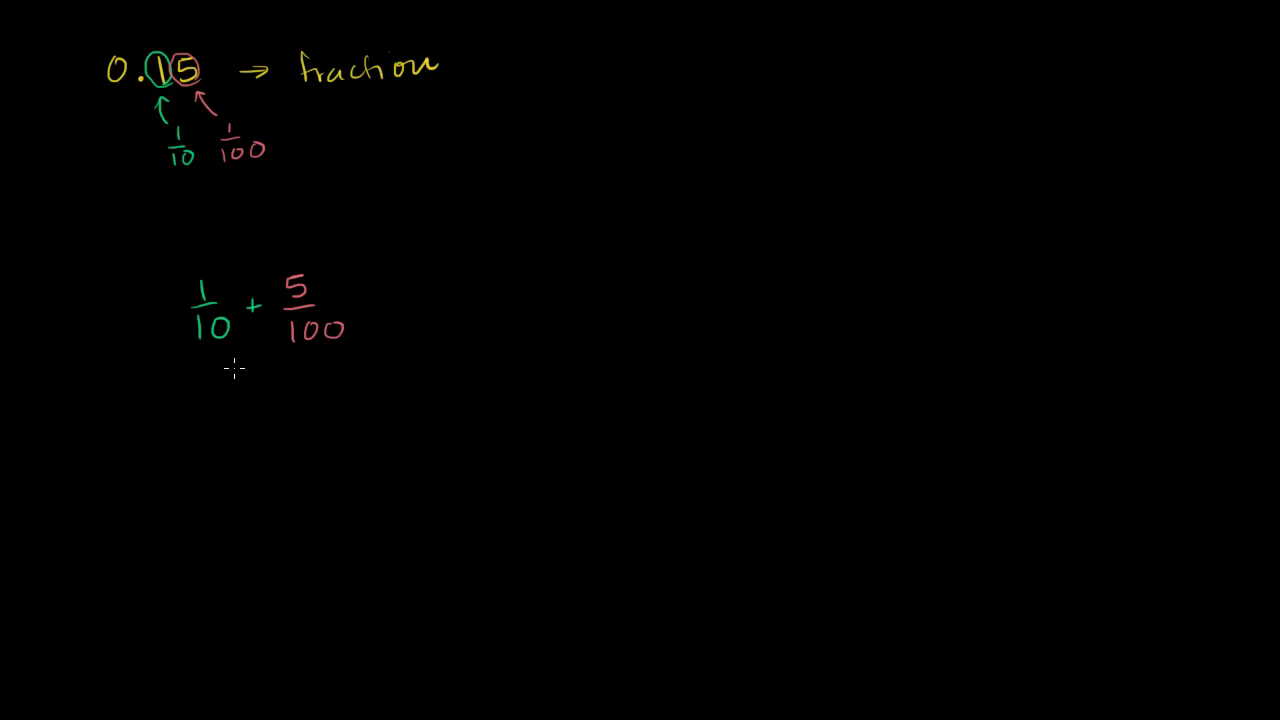 0.15 → fraction
1/10 1/100
1/10 + 5/100